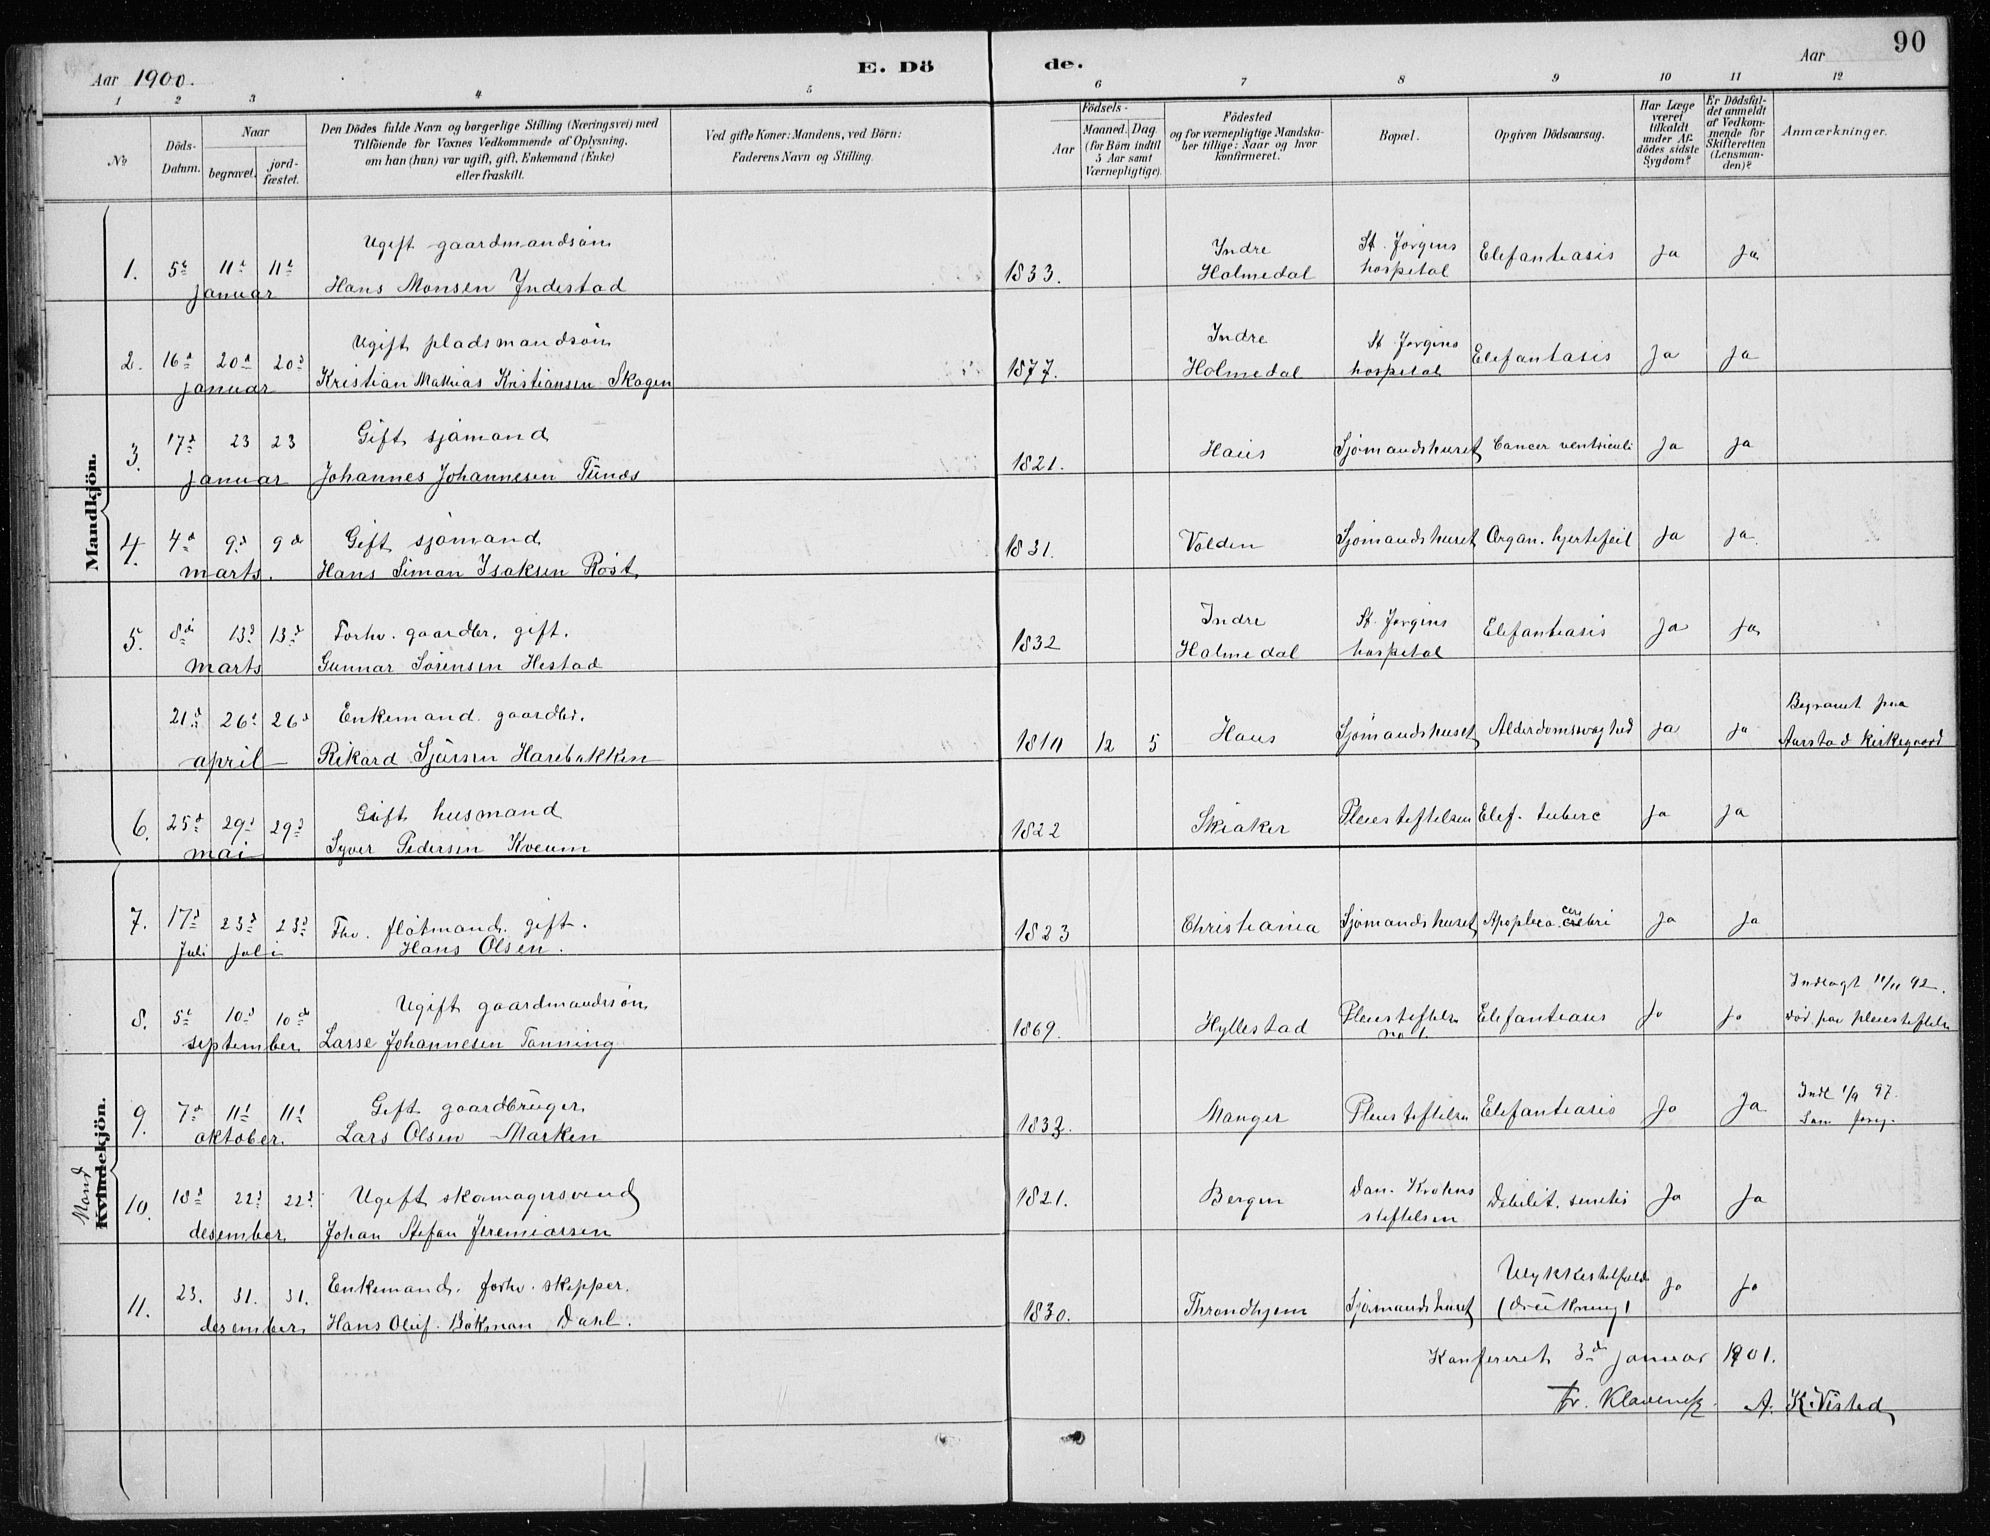 90
Aar 1900.
E. Dö de.
Aar
1 2 3 4 5 6 7 8 9 10 11 12
No
Döds-Datum.
Naar
begravet.
jord-fæstet.
Den Dödes fulde Navn og borgerlige Stilling (Næringsvei) med
Tilföiende for Voxnes Vedkommende af Oplysning,
om han (hun) var ugift, gift, Enkemand (Enke)
eller fraskilt.
Ved gifte Koner: Mandens, ved Börn:
Faderens Navn og Stilling.
Födsels-
Aar
Maaned.
Dag.
(for Börn indtil
5 Aar samt
Værnepligtige).
Födested
og for værnepligtige Mandska-
ber tillige: Naar og hvor
konfirmeret.
Bopæl.
Opgiven Dödsaarsag.
Har Læge
været
tilkaldt
under Af-
dödes sidste
Sygdom?
Er Dödsfal-
det anmeldt
af Vedkom-
mende for
Skifteretten
(Lensman-
den)?
Anmærkninger.
Mandkjön.
Ugift gaardmandsøn
1. 5te 11te 11te januar Hans Monsen Indestad 1833. Indre Holmedal St. Jørgens hospital Elefantiasis Ja Ja
Ugift pladsmandsøn
2. 16d 20d 20d januar Kristian Mathias Kristiansen Skogen 1877. Indre Holmedal St Jørgens hospital Elefantasis Ja Ja
Gift sjømand
3. 17d 23 23 januar Johannes Johannesen Tunæs 1821. Haus Sjømandshuset Cancer ventriculi Ja Ja
Gift sjømand
4. 4d 9d 9d marts. Hans Simon Isaksen Røst 1831. Volden Sjømandshuset Organ. hjertefeil Ja Ja.
Forhv. gaardbr. gift.
5. 8d 13d 13d marts Gunnar Sørensen Hestad 1832 Indre Holmedal St. Jørgens hospital Elefantiasis Ja Ja
Enkemand gaardbr.
21d 26d 26d april Rikard Sjursen Harebakken 12 5 Haus Sjømandshuset Alderdomssvaghed Ja Ja Begravet paa Aarstad kirkegaard
Gift husmand
6. 25d 29d 29d mai Syver Pedersen Kveum 1822 Skiaker Pleiestiftelsen Elef. tuberc Ja Ja
Mand
Kvindekjön.
7. 17d 23d 23d Juli juli Fhv. flåtmand. gift. Hans Olsen. 1823 Christiania Sjømandshuset Apoplexia cerebri Ja Ja
Ugift gaardmandssøn
8. 5te 10d 10de september Larse Johannesen Tønning 1869. Hyllestad Pleiestiftelse no 1. Elefantiasis Ja Ja Indlagt 11/11 92. død paa pleiestiftelsen
Gift gaardbruger
9. 7d 11t 11t oktober. Lars Olsen Marken 1832. Manger Pleiestiftelsen Elefantiasis Ja Ja Indl 1/9 97.
Ugift skomagersvend
10. 18d 22d 22d desember Johan Stefan Jeremiassen 1821. Bergen Dan. Krohns stiftelsen Debilit. senilis Ja Ja
Enkemand. forhv. skipper.
11. 23. 31. 31. desember Hans Oluf Bøkman Dahl. 1830. Throndhjem Sjømandshuset Ulykkestilfælde (drukning) Ja Ja
Konfereret 3de januar 1901.
A. K. Visted